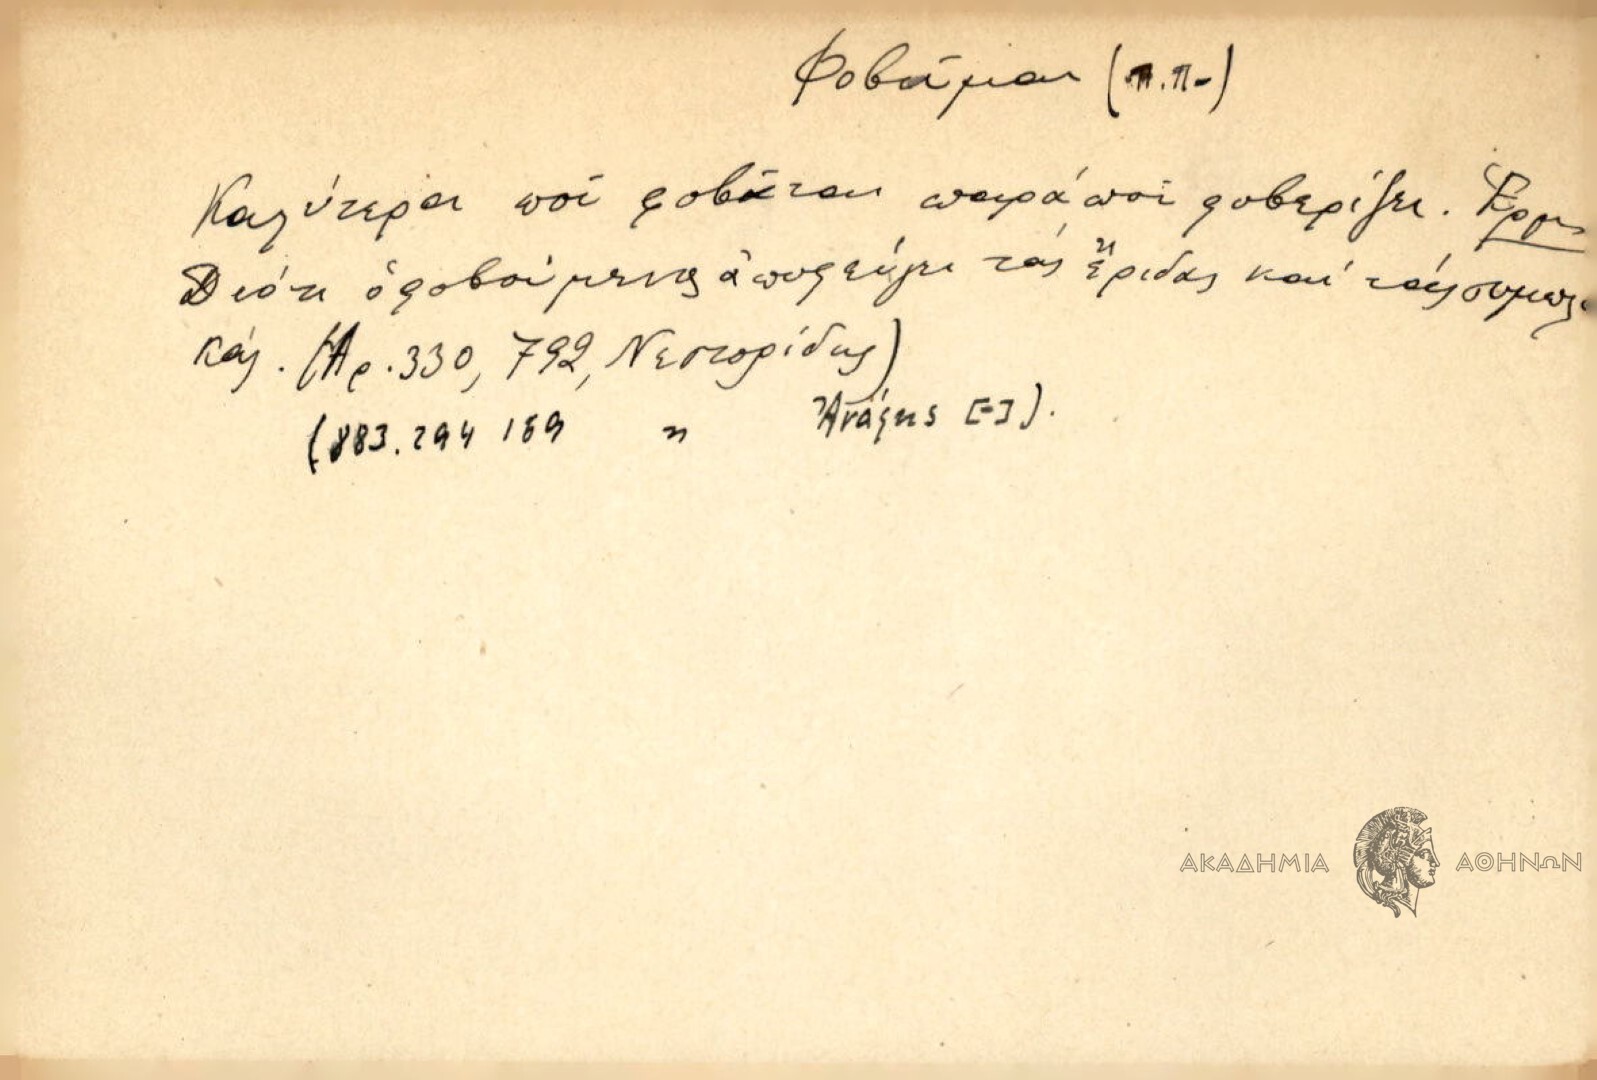 Φοβᾶμαι (π.π.)
Καλύτερα ποῦ φοβᾶται παρά ποῦ φοβερίζει. Ἑρμ.
Διότι ὁ φοβούμενος ἀποφεύγει τάς ἔριδας καί τάς συμπλο
κάς. (Ἀρ. 330, 792, Νεστορίδης)
(883. 294 159 " [-]).
ΑΚΑΔΗΜΙΑ ΑΘΗΝΩΝ